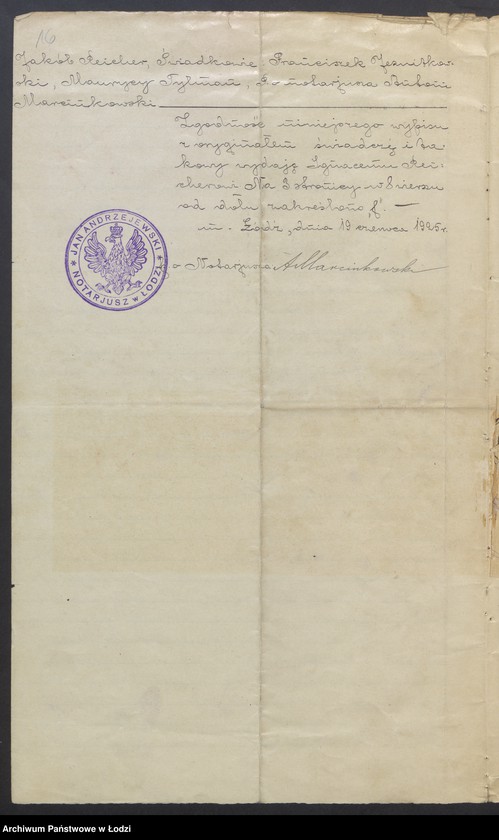 16
Jakób Reicher, Świadkowie: Franciszek Jesnitkow-
ski, Maurycy Tylman, Za notarjusza Antoni
Marcinkowski.
Zgodność niniejszego wypisu
z oryginałem świadczę i ta-
kowy wydaję Ignacemu Rei-
cherowi. Na 3 stronicy w 8 wierszu
od dołu zakreślono
m. Łódź, dnia 19 czerwca 1925 r.
Notarjusza AMarcinkowski
* JAN ANDRZEJEWSKI *
NOTARJUSZ w ŁODZI
Archiwum Państwowe w Łodzi